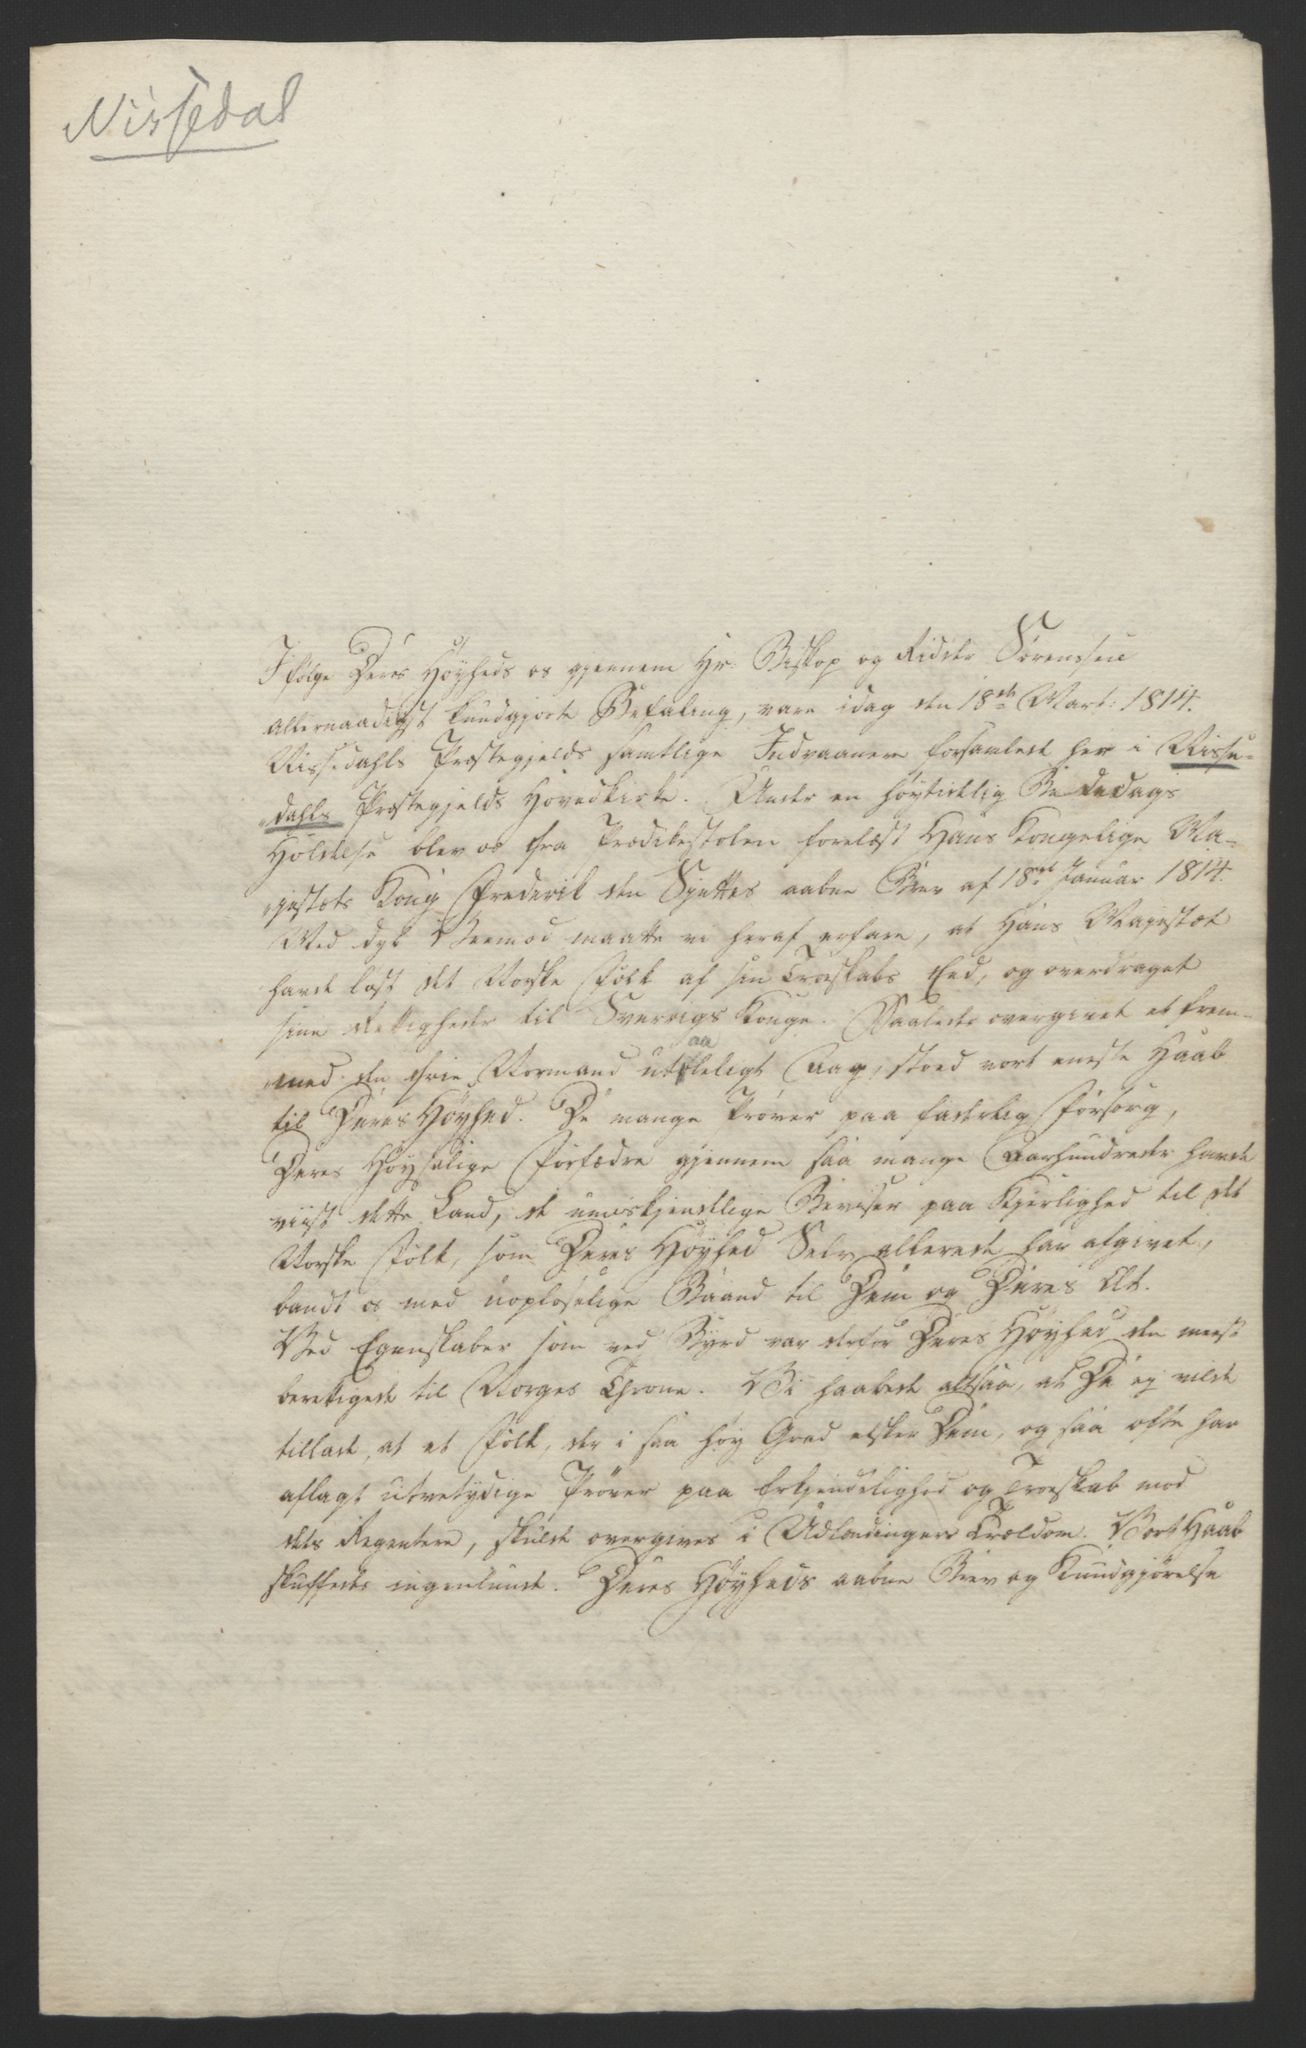 Nissedal
Ifølge Deres Høyheds os gjennem Hr. Biskop og Ridder Sørenssen
allernaadigst kundgjorte Befaling, vare idag den 18de Mart: 1814.
Nissedahls Præstegjelds samtlige Indvaanere forsamlede her i Nisse-
dahls Præstegjelds Hovedkirke. Under en høytidelig Bededags
Holdelse blev os fra Prædikestolen forelæst Hans Kongelige Ma-
jestæts Kong Frederik den Sjettes aabne Brev af 18de Januar 1814.
Med dyb Veemod maatte vi heraf erfare, at Hans Majestæt
havde løst det Norske Folk af sin Troeskabs Eed, og overdraget
sine Rettigheder til Sverrigs Konge. Saaledes overgivet et frem-
med den frie Normand utaaleligt Aag, stoed vort eneste Haab
til Deres Høyhed. De mange Prøver paa faderlig Forsorg,
Deres Høysalige Forfædre gjennem saa mange Aarhundreder havde
viist dette Land, de umiskjendtlige Beviser paa Kjerlighed til det
Norske Folk, som Deres Høyhed Selv allerede har afgivet,
bandt os med uopløselige Baand til Dem og Deres Æt.
Ved Egenskaber som ved Byrd var derfor Deres Høyhed den meest
berettigede til Norges Throne. Vi haabede altsaa, at De ej vilde
tillade, at et Folk, der i saa høy Grad elsker Dem, og saa ofte har
aflagt utvetydige Prøver paa Erkjendelighed og Troeskab mod
dets Regentere, skulde overgives i Udlændingers Trældom. Vort Haab
skuffedes ingenlunde. Deres Høyheds aabne Brev og Kundgjørelse